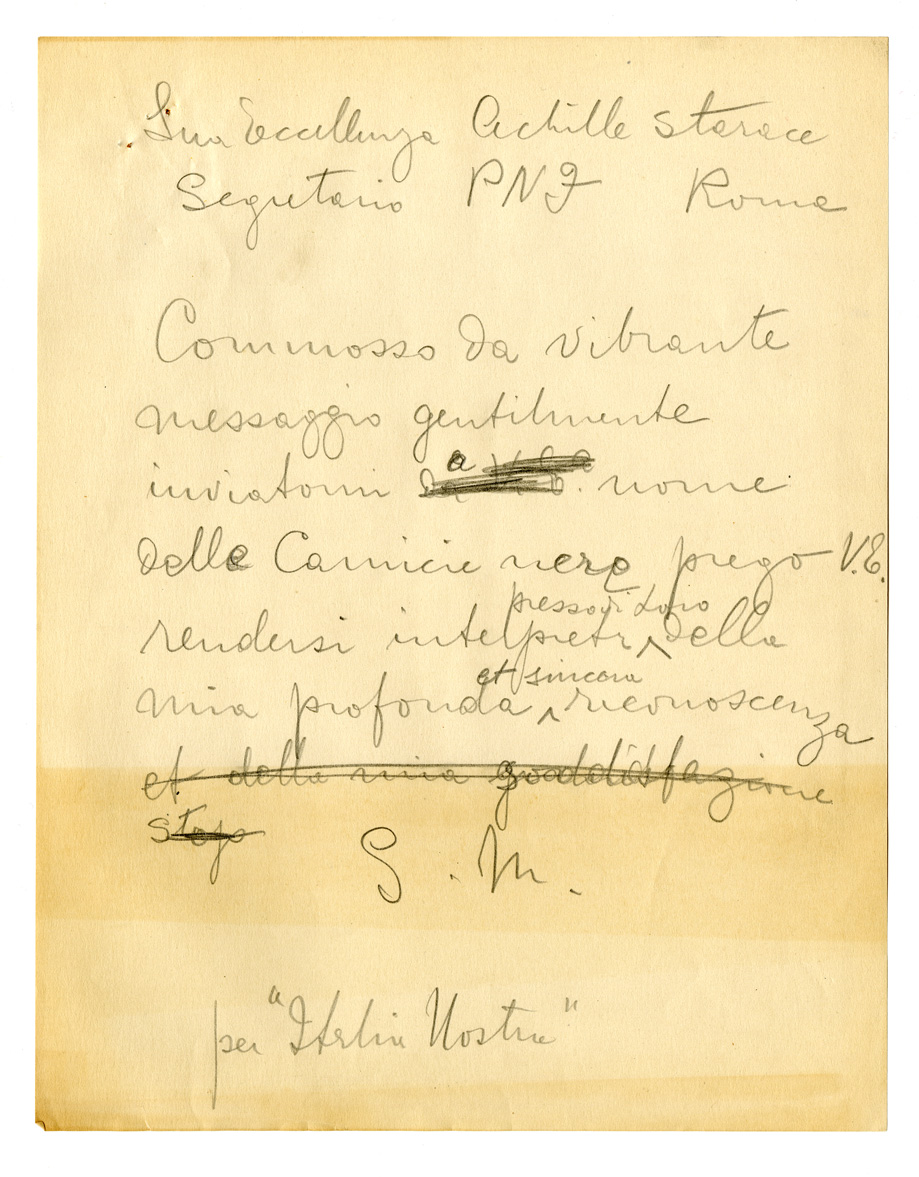 Sua Eccellenza Achille Starace
Segretario PNF Roma
Commosso da vibrante
messaggio gentilmente
inviatomi a nome
delle Camicie nere prego V.E.
pressodi Loro
rendersi intelpietr della
et sincera
mia profonda riconoscenza
et della mia soddisfazione
stop
G. M.
per "Italia Nostra"